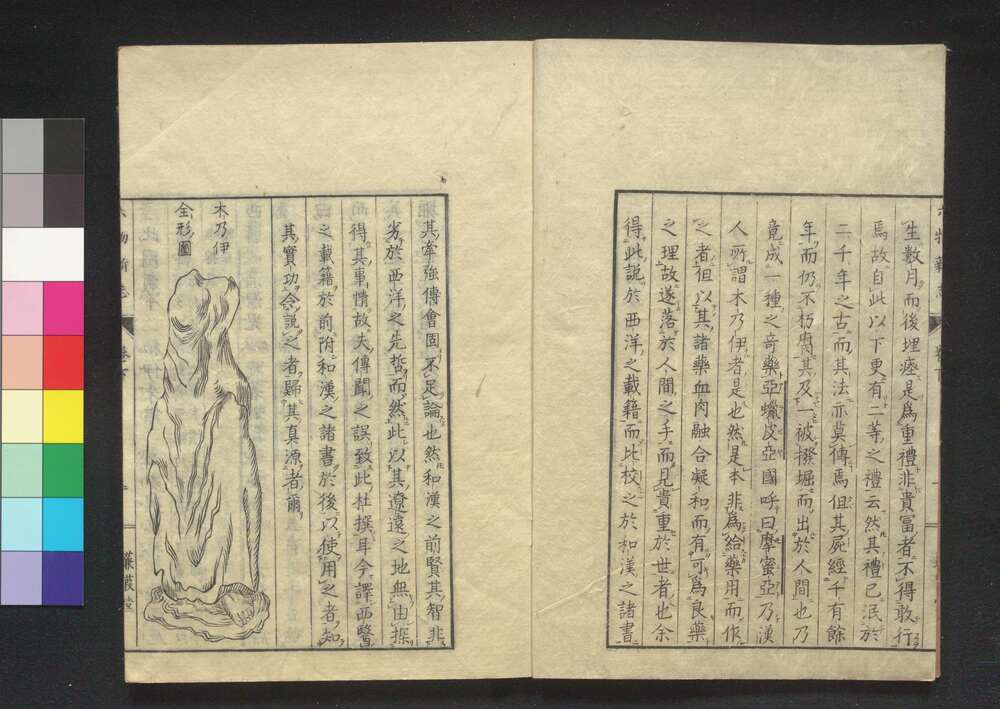 生數月而後埋瘞是爲重禮非貴冨者不得敢行
焉故自此以下更有二等之禮云然其禮已泯於
二千年之古而其法亦莫傳焉但其屍經千有餘
年而仍不朽腐其及一被撥堀而出於人間也乃
竟成一種之奇藥亞蠟皮亞國呼曰摩蜜亞乃漢
人所謂木乃伊者是也然是本非爲給藥用而作
之者但以其諸藥血肉融合凝和而有可爲良藥
之理故遂落於人間之手而見貴重於世者也余
得此說於西洋之載籍而比校之於和漢之諸書
其牽強傳會固不足論也然和漢之前賢其智非
劣於西洋之先哲而然此以其遼遠之地無由探
得其事情故夫傳聞之誤致此杜撰耳今譯西醫
之載籍於前附和漢之諸書於後以使用之者知
其實功令說之者歸其真源者爾
木乃伊
全形圖
物新志
卷下
蒹葭堂